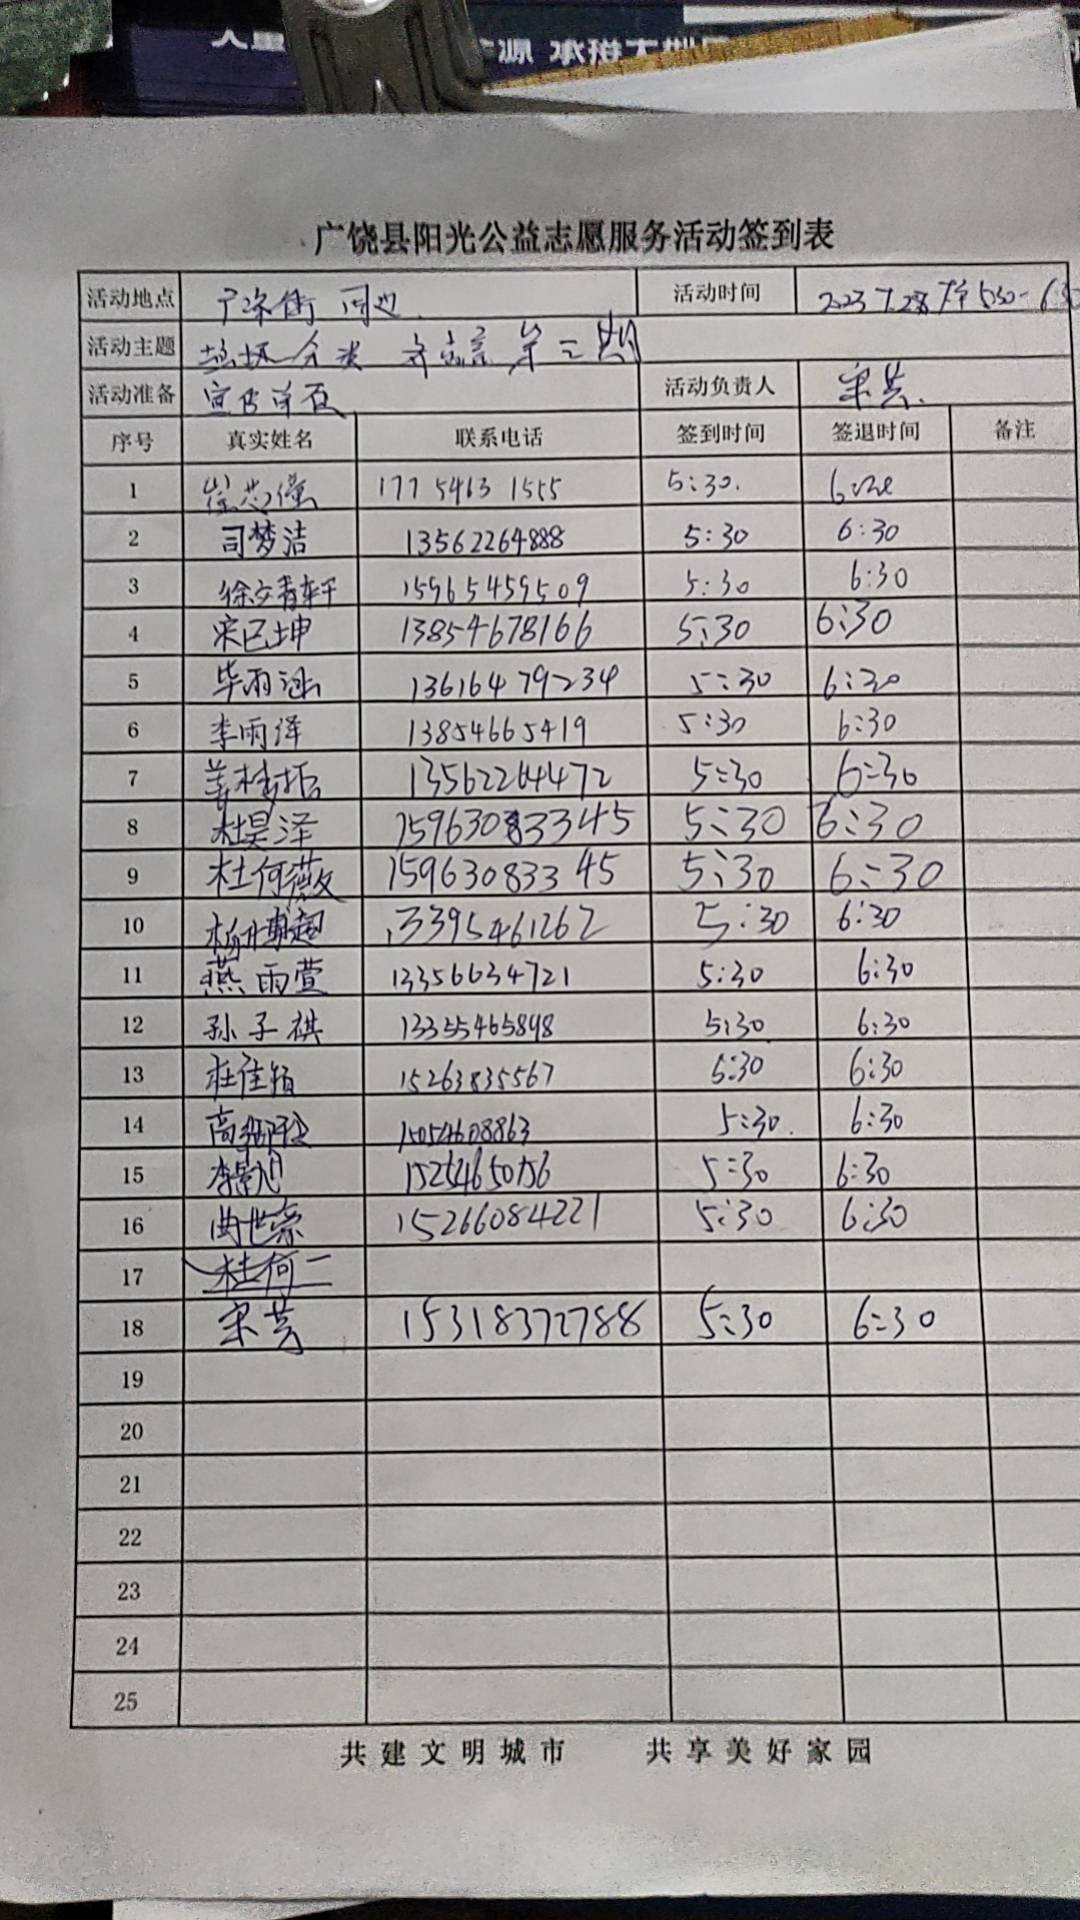 源 承揽大型
广饶县阳光公益志愿服务活动签到表
活动地点 周边 活动时间 2023 7.28 下午 530-630
活动主题 垃圾分类 齐 第三期
活动准备 宣传单页 活动负责人 宋芸
序号 真实姓名 联系电话 签到时间 签退时间 备注
1 177 5463 1555 5:30.
2 司梦洁 13562264888 5:30 6:30
3 徐文青轩 15965459509 5:30 6:30
4 宋已坤 13854678166 5:30 6:30
5 毕雨涵 13616479234 5:30 6:30
6 李雨泽 13854665419 5:30 6:30
7 姜 13562264472 5:30 6:30
8 杜昊泽 15963083345 5:30 6:30
9 杜何薇 15963083345 5:30 6:30
10 13395461262 5:30 6:30
11 燕雨萱 13356634721 5:30 6:30
12 孙子祺 13355465898 5:30 6:30
13 杜佳 15263835567 6:30 6:30
14 高 15054608863 5:30. 6:30
15 李 15254650156 5:30 6:30
16 曲世豪 15266084221 5:30 6:30
17 杜何一
18 宋芸 15318372788 5:30 6:30
19
20
21
22
23
24
25
共建文明城市 共享美好家园